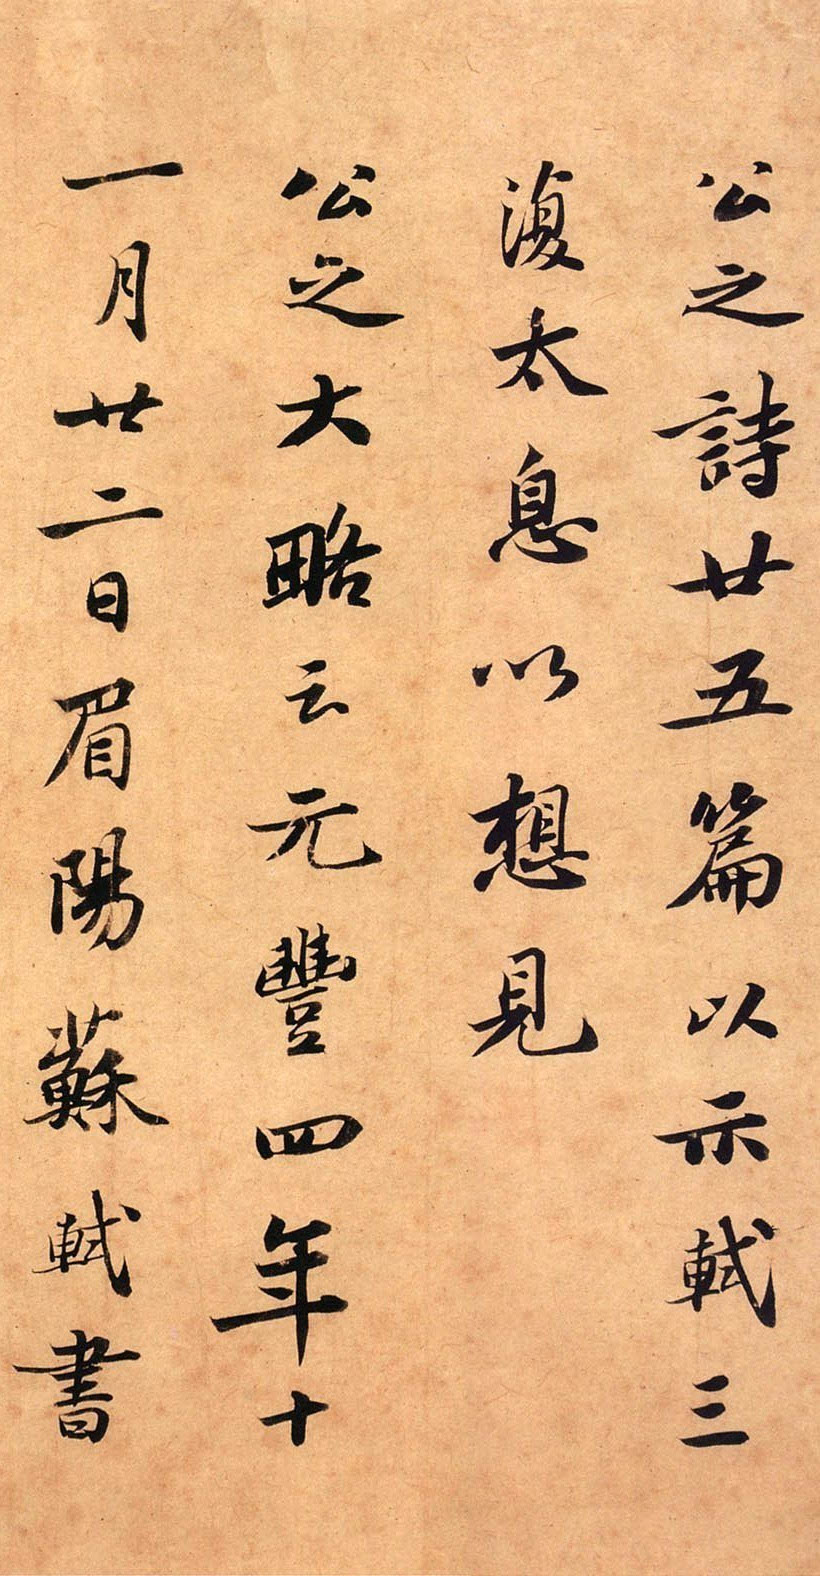 公之詩廿五篇以示軾三
復太息以想見
公之大略云元豐四年十
一月廿二日眉陽蘇軾書